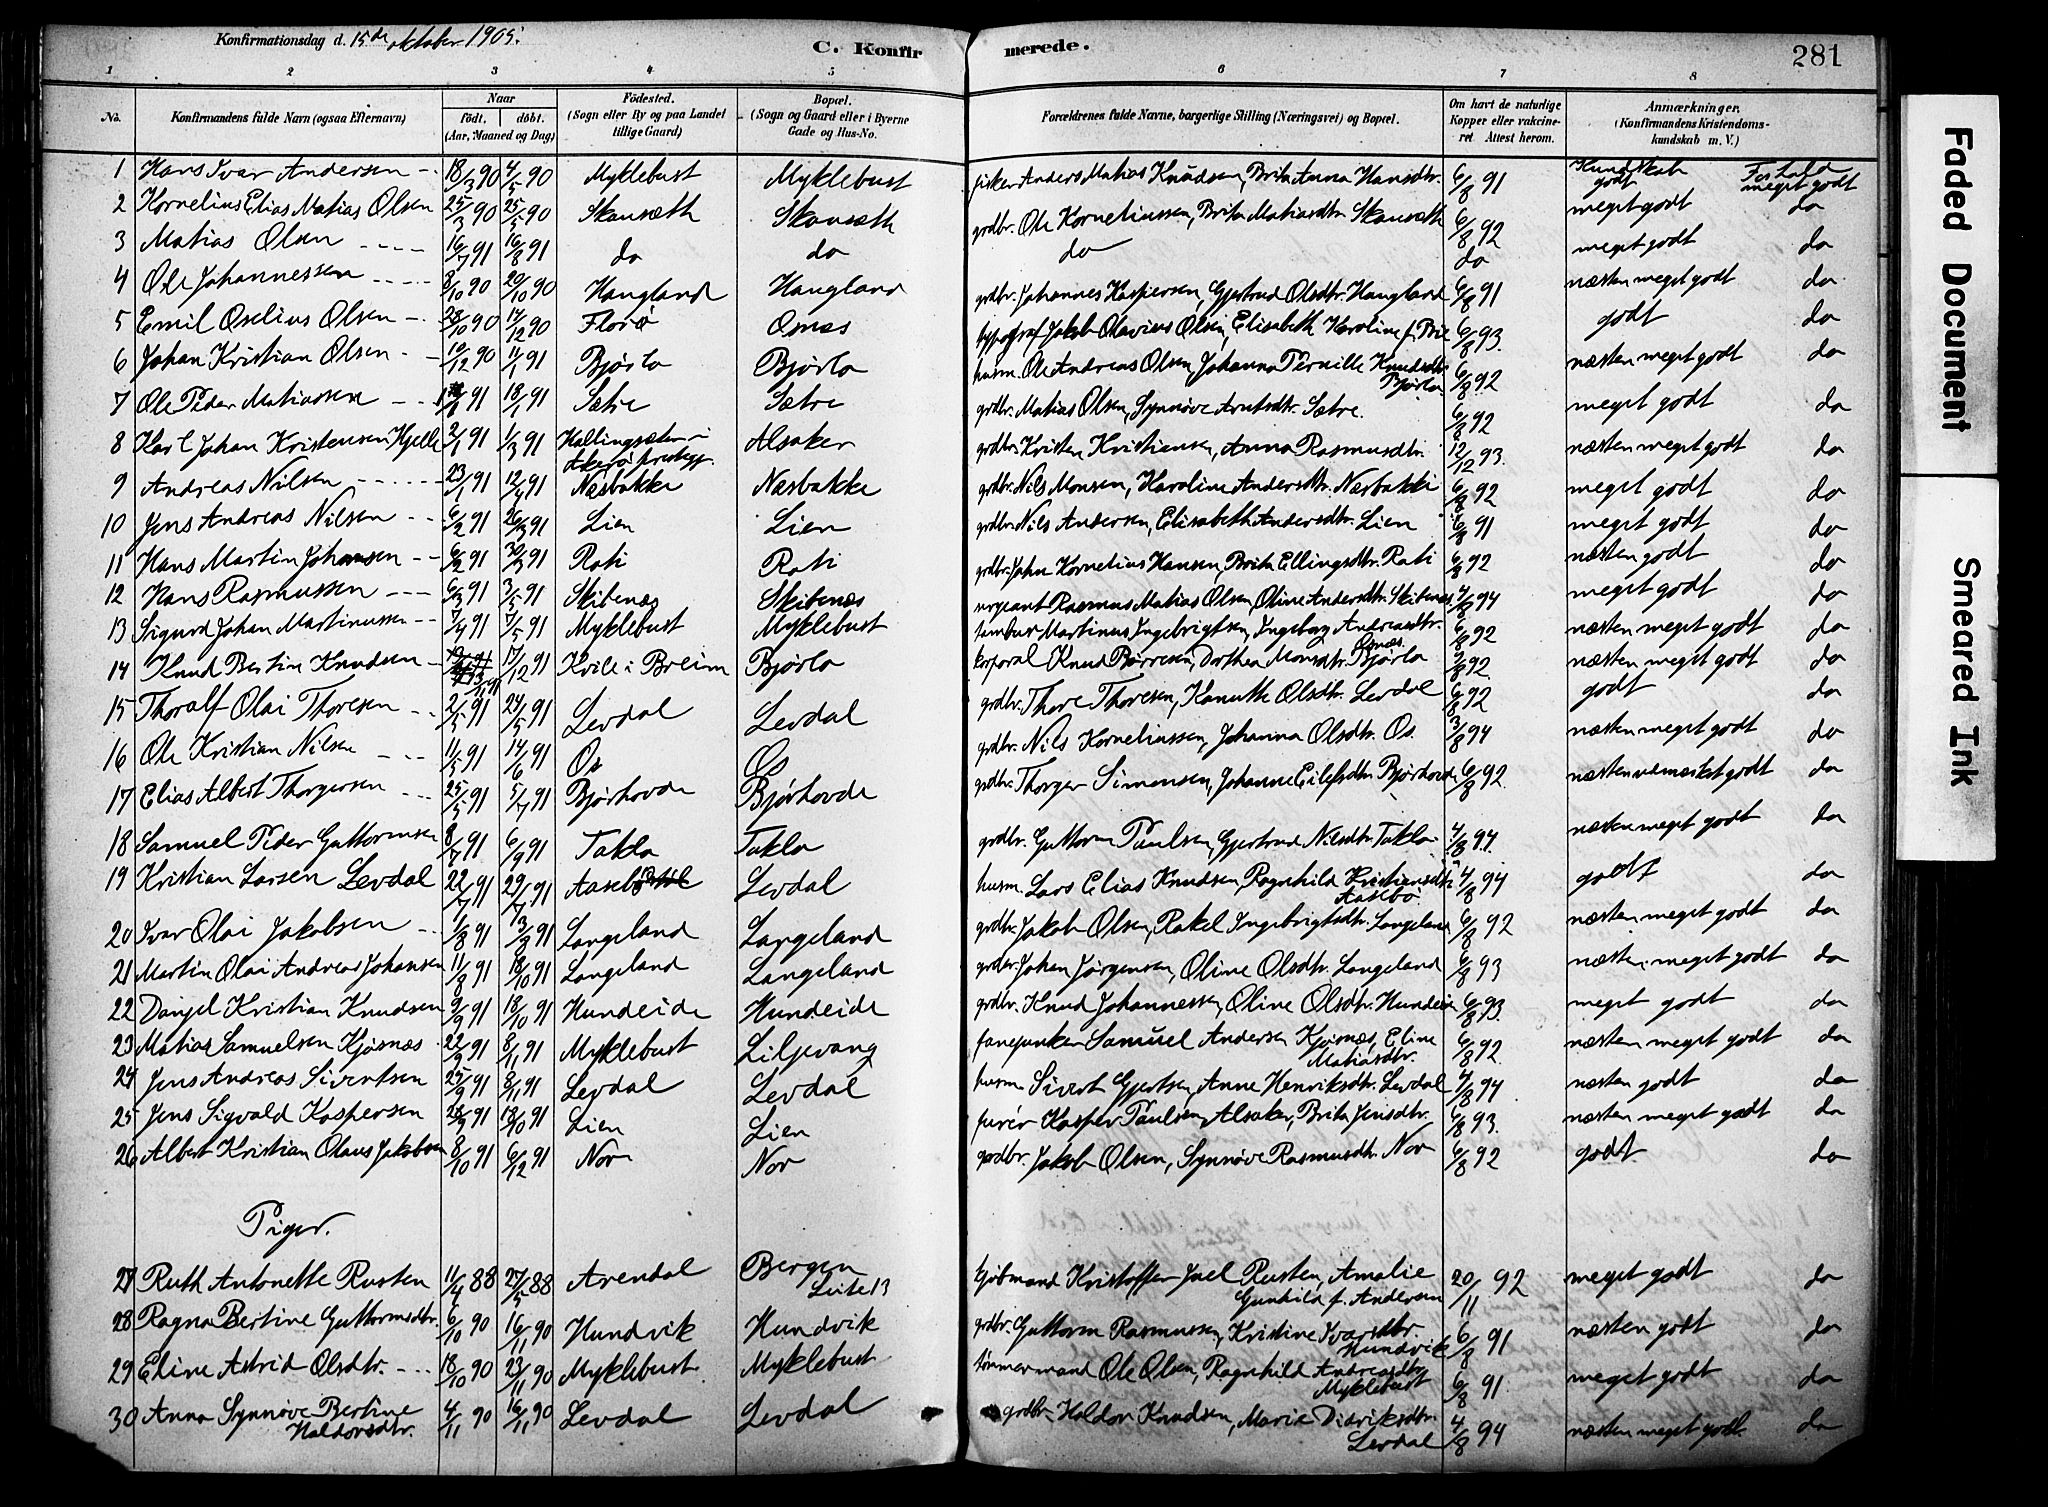 Konfirmationsdag d. 15de oktober 1905.
C. Konfirmerede.
281
1 2 3 4 5 6 7 8
No. Konfirmandens fulde Navn (ogsaa Efternavn) Naar Födt. döbt. (Aar, Maaned og Dag) Födested. (Sogn eller By og paa Landet tillige Gaard) Bopæl. (Sogn og Gaard eller i Byerne Gade og Hus-No. Forældrenes fulde Navne, borgerlige Stilling (Næringsvei) og Bopæl. Om havt de naturlige Kopper eller vaccineret Attest herom. Anmærkninger. (Konfirmandens Kristendomskundskab m. V.)
Kundskab Forhold
1 Hans Ivar Andersen 18/3 90 4/5 90 Myklebust Myklebust fisker Anders Matias Knudsen, Brita Anna Hansdtr. 6/8 91 godt meget godt
2 Kornelius Elias Matias Olsen 25/3 90 25/5 90 Skansæth Skansæth grdbr. Ole Korneliussen, Brita Matiasdtr. Skansæth 6/8 92 meget godt do
3 Matias Olsen 16/7 91 16/8 91 do do do do meget godt do
4 Ole Johannessen 8/10 90 20/10 90 Haugland Haugland grdbr. Johannes Kaspersen, Gjertrud Olsdtr. Haugland 6/8 91 næsten meget godt do
5 Emil Oselius Olsen 28/10 90 14/12 90 Florø Omæs typograf Jakob Olavius Olsen, Elisabeth Karoline f. Brie 6/8 93. godt do
6 Johan Kristian Olsen 10/12 90 11/1 91 Bjørlo Bjørlo husm. Ole Andreas Olsen, Johanna Pernille Knudsdtr. Bjørlo 6/8 92 næsten meget godt do
7 Ole Peder Matiassen 1/1 91 18/1 91 Sætre Sætre grdbr. Matias Olsen, Synnøve Arntsdtr. Sætre. 6/8 92 meget godt do
8 Karl Johan Kristensen Hjelle 2/1 91 1/3 91 Hallingsæter i Akerø prestegj. Alsaker grdbr. Kristen Kristiansen, Anna Rasmusdtr. 12/12 93. næsten meget godt do
9 Andreas Nilsen 23/1 91 12/4 91 Næsbakke Næsbakke grdbr. Nils Monsen, Karoline Andersdtr. Næsbakke 6/8 92 meget godt do
10 Jens Andreas Nilsen 6/2 91 26/3 91 Lien Lien grdbr. Nils Andersen, Elisabeth Andersdtr. Lien 6/8 91 meget godt do
11 Hans Martin Johansen 6/2 91 30/3 91 Roti Roti grdbr. John Kornelius Hansen, Brita Ellingsdtr. Roti 6/8 92 næsten godt do
12 Hans Rasmussen 6/3 91 3/5 91 Skibenæs Skibenæs sergeant Rasmus Matias Olsen, Oline Andersdtr. Skibenæs 4/8 94 meget godt do
13 Sigurd Johan Martinussen 7/4 91 7/5 91 Myklebust Myklebust tambur Martinus Ingebrigtsen, Ingeborg Andreasdtr. 6/8 92 næsten meget godt do
14 Knud Bertin Knudsen 13/11 91 17/12 91 Kvile i Breim Bjørlo korporal Knud Børresen, Dorthea Monsdtr. Bjørlo 9/8 92. næsten meget godt do
15 Thoralf Olai Thoresen 2/5 91 24/5 91 Levdal Levdal grdbr. Thore Thoresen, Kanutte Olsdtr. Levdal 6/8 92 godt do
16 Ole Kristian Nilsen 11/5 91 14/6 91 Os Os grdbr. Nils Korneliussen, Johanna Olsdtr. Os. 3/8 94 næsten meget godt do
17 Elias Albert Thorgersen 25/5 91 5/7 91 Bjørhovde Bjørhovde grdbr. Thorger Simonsen, Johanne Eilefsdtr. Bjørhovde 6/8 92 næsten udmærket godt do
18 Samuel Peder Guttormsen 8/7 91 6/9 91 Taklo Taklo grdbr. Guttorm Paulsen, Gjertrud Nilsdtr. Taklo 4/8 94. næsten meget godt do
19 Kristian Larsen Levdal 22/7 91 29/7 91 Aasebø Levdal husm. Lars Elias Knudsen, Ragnhild Kristiansdtr. Aasebø 4/8 94 godt do
20 Ivar Olai Jakobsen 1/8 91 13/8 91 Langeland Langeland grdbr. Jakob Olsen, Rakel Ingebrigtsdtr. Langeland 6/8 92 næsten meget godt do
21 Martin Olai Andreas Johansen 11/8 91 18/10 91 Langeland Langeland grdbr. Johan Jørgensen, Oline Olsdtr. Langeland 6/8 93 næsten meget godt do
22 Daniel Kristian Knudsen 9/9 91 18/10 91 Hundeide Hundeide grdbr. Knud Johannessen, Oline Olsdtr. Hundeide 6/8 93. meget godt do
23 Matias Samuelsen Kjøsnæs 22/9 91 8/11 91 Myklebust Liljevang fanejunker Samuel Andersen Kjøsnæs, Eline Matiasdtr. 6/8 92. næsten meget godt do
24 Jens Andreas Sivertsen 25/9 91 8/11 91 Levdal Levdal husm. Sivert Gjertsen, Anne Henriksdtr. Levdal 4/8 94 næsten godt do
25 Jens Sigvald Kaspersen 28/9 91 18/10 91 Lien Lien furér Kasper Paulsen Alsaker, Brita Jensdtr. 6/8 93. næsten meget godt do
26 Albert Kristian Olaus Jakobsen 8/10 91 6/12 91 Nor Nor grdbr. Jakob Olsen, Synnøve Rasmusdtr. Nor 6/8 92 godt. do
Piger.
27 Ruth Antonette Rusten 11/4 88 27/5 88 Arendal Bergen kjøbmand Kristoffer Juel Rusten, Amalie Gunhild f. Andersen 20/11 92 meget godt do
28 Ragna Bertine Guttormsdtr. 6/10 90 16/11 90 Hundvik Hundvik grdbr. Guttorm Rasmussen, Kristine Ivarsdtr. Hundvik 6/8 91 næsten godt do
29 Eline Astrid Olsdtr. 18/10 90 23/11 90 Myklebust Myklebust tømmermand Ole Olsen, Ragnhild Andreasdtr. Myklebust 6/8 91 meget godt do
30 Anna Synnøve Bertine Haldorsdtr. 4/11 90 16/11 90 Levdal Levdal grdbr. Haldor Knudsen, Marie Didriksdtr. Levdal 4/8 94 næsten meget godt. do
Faded Document
Smeared Ink